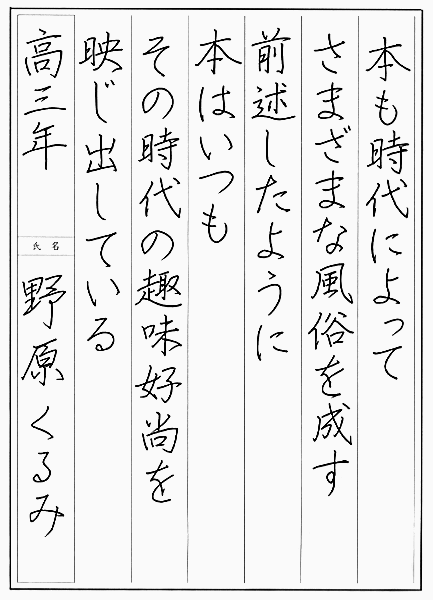 本も時代によって
さまざまな風俗を成す
前述したように
本はいつも
その時代の趣味好尚を
映じ出している
高三年
氏名
野原くるみ